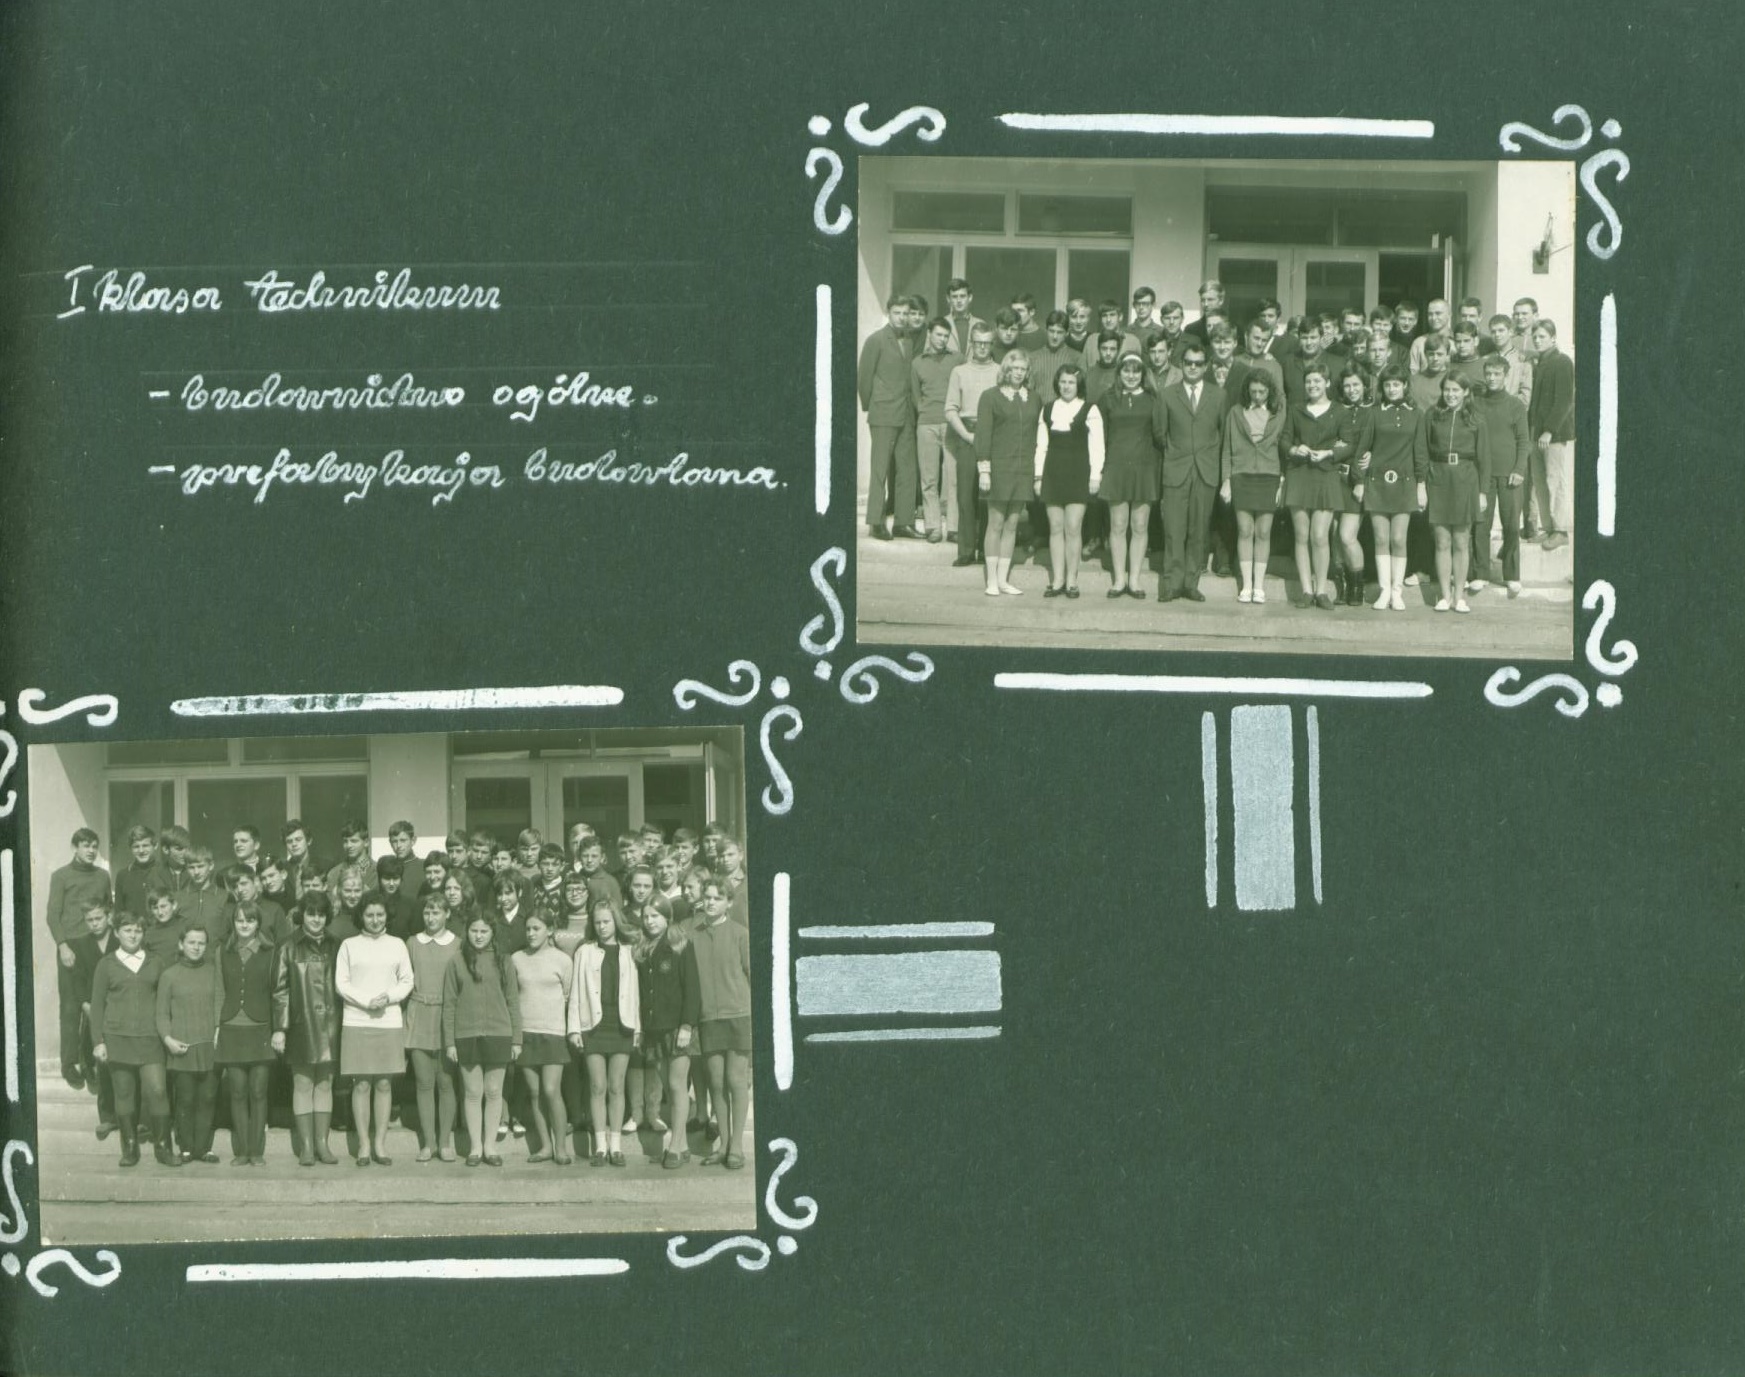 I klasa technikum
- budownictwo ogólne.
- prefabrykacja budowlana.